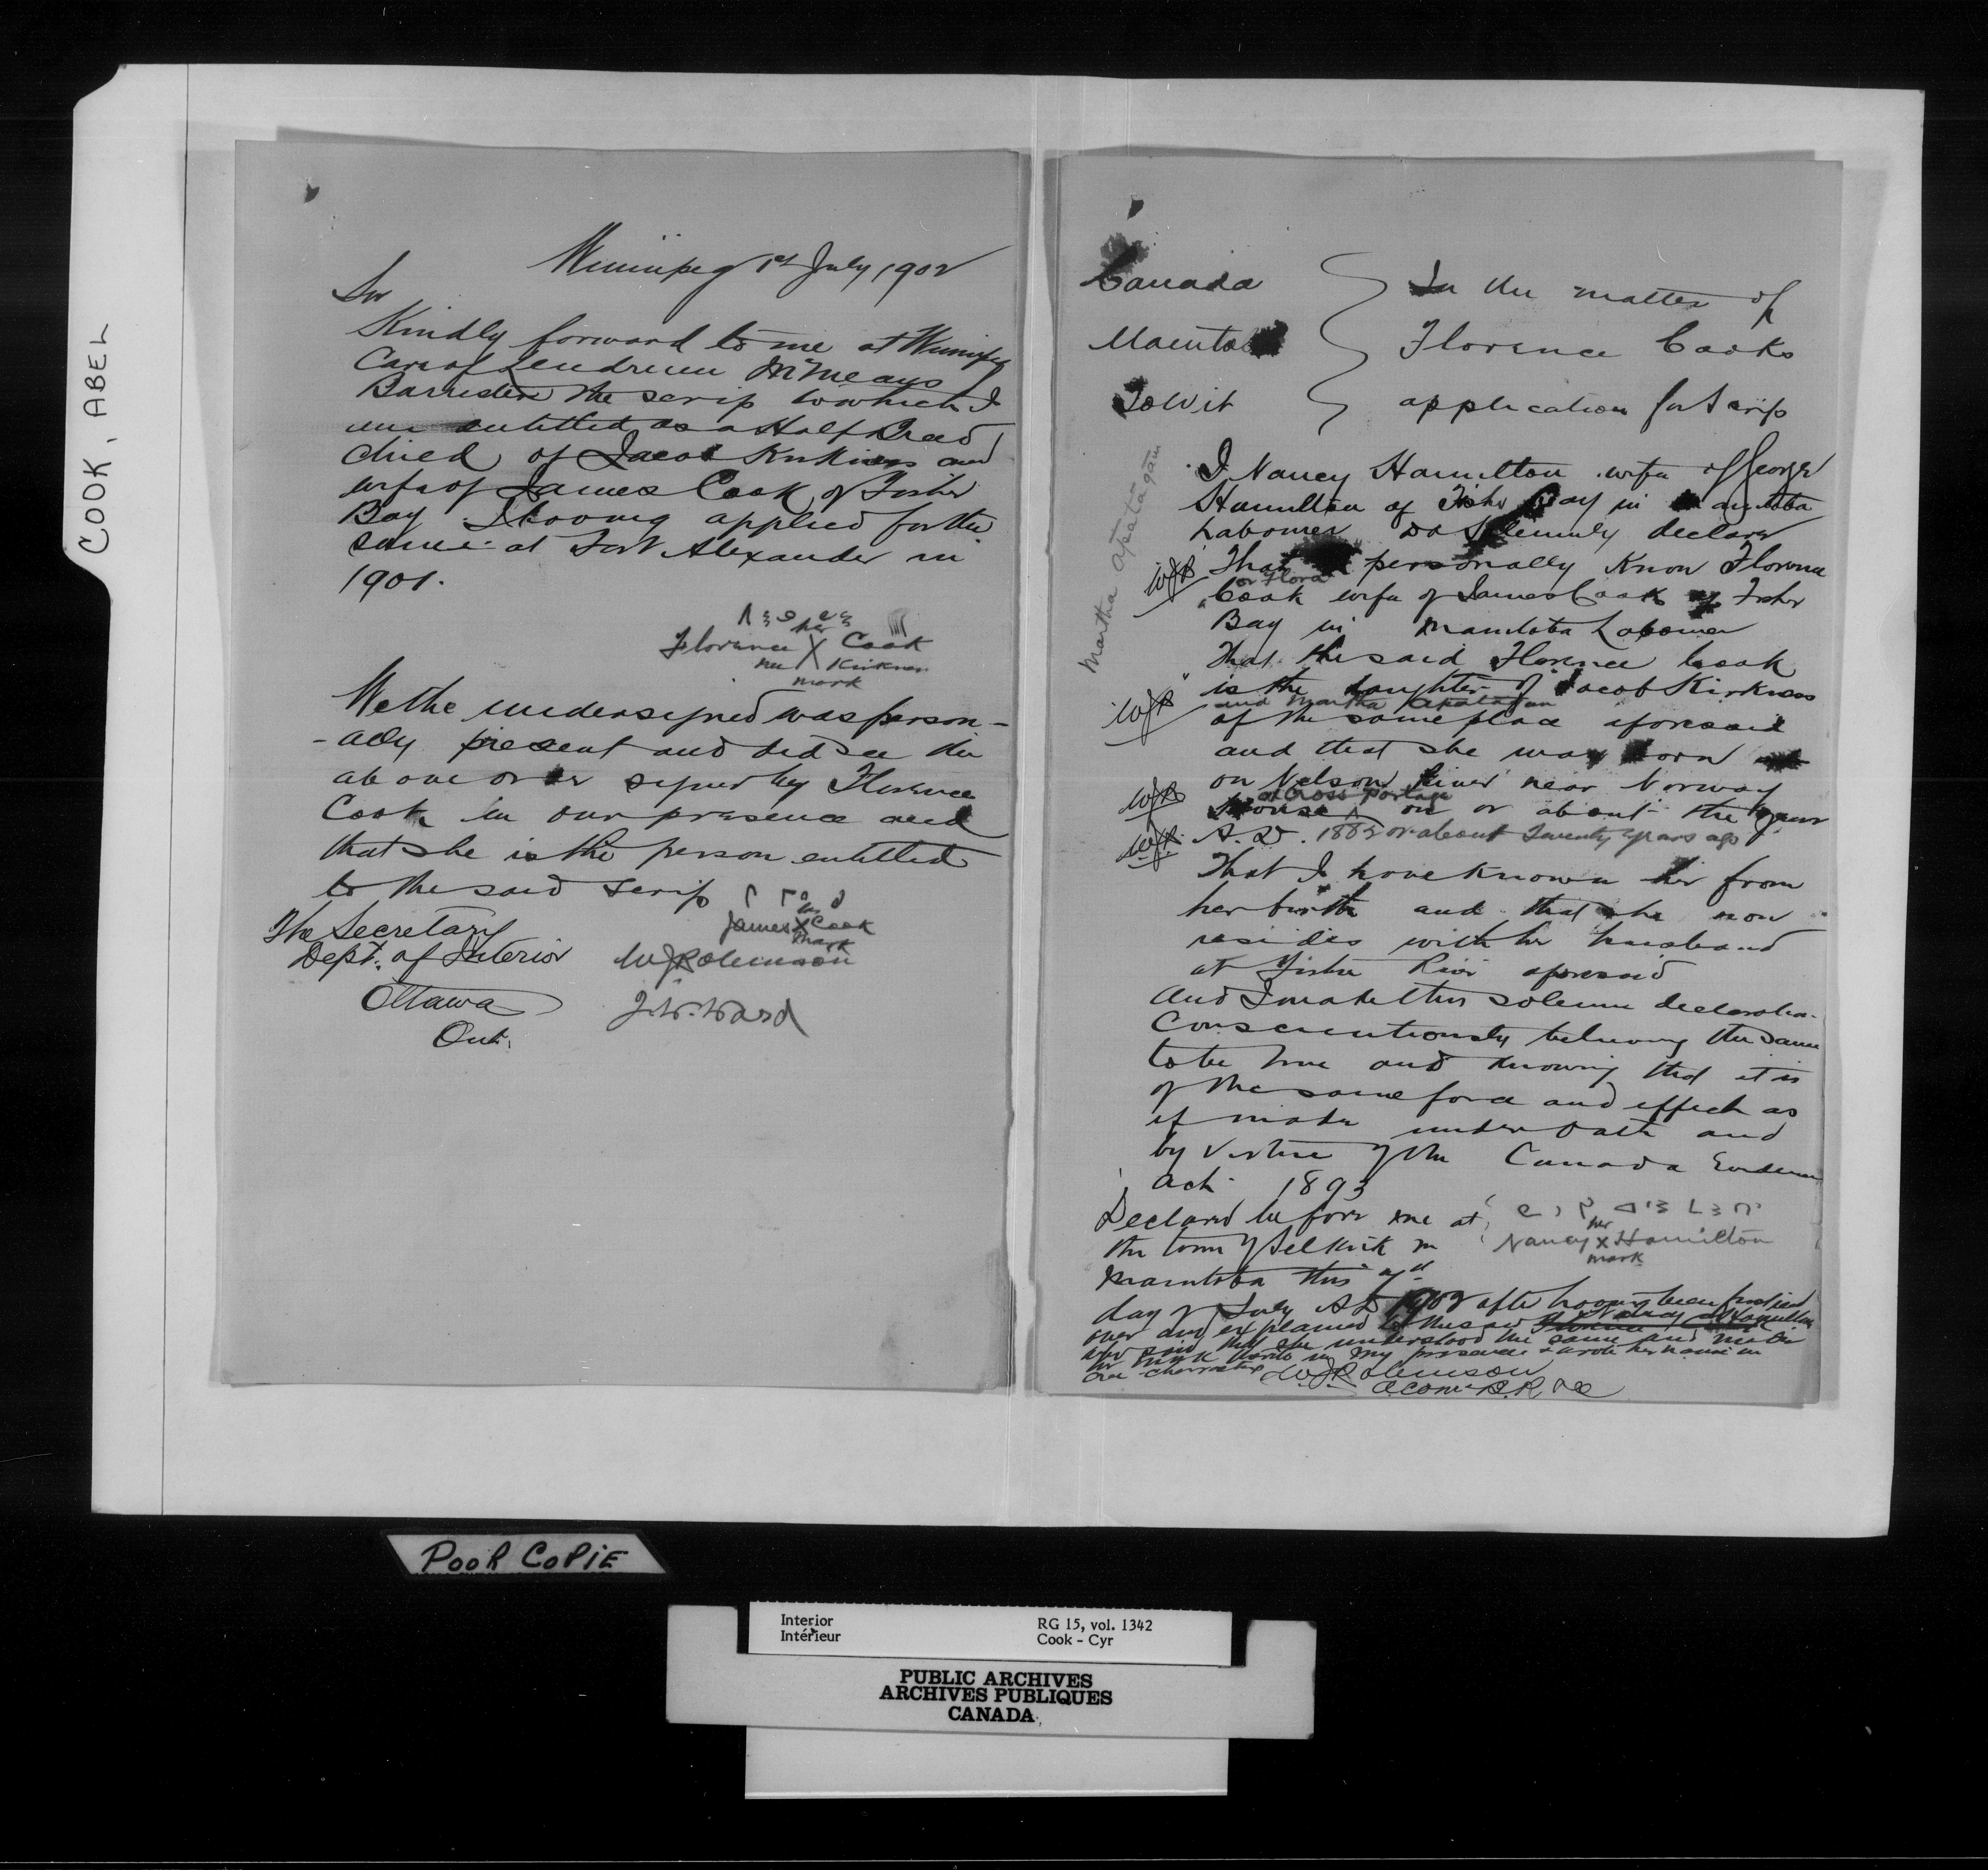 COOK, ABEL
Winnipeg 1st July 1902
Sir
Kindly forward to me at Winnipeg
Care of Lendrum McMeans
Barrister the scrip to which I
am entitled as a Half Breed
child of Jacob Kirkness and
wife of James Cook of Fisher
Bay I having applied for the
same at Fort Alexander in
1901.
her
Florence X Cook
nee Kirkness
mark
We the undersigned was person-
-ally present and did see the
above order signed by Florence
Cook in our presence and
that she is the person entitled
to the said scrip
his
James X Cook
mark
The Secretary
Dept. of Interior
WJRobinson
Ottawa
J.W. Ward
Ont.
Canada
In the matter of
Manitoba
Florence Cooks
To Wit
application for Scrip
Martha apatagam
I Nancy Hamilton wife of George
Hamilton of Fisher Bay in Manitoba
Labourer Do Solemnly declare
WJR That I personally Know Florence
or Flora
Cook wife of James Cook of Fisher
Bay in Manitoba Labourer
That the said Florence Cook
is the daughter of Jacob Kirkness
WJR and Martha
of the same place aforesaid
and that she was born
on Nelson River near Norway
WJR at Cross Portage
House on or about the year
WJR A.D. 1882 or about Twenty years ago
That I have known her from
her birth and that she now
resides with her husband
at Fisher River aforesaid
And I make this solemn declaration
Conscientiously believing the same
to be true and knowing that it is
of the same force and effect as
if made under oath and
by Virtue of the Canada Evidence
Act 1893
Declared before me at
the town of Selkirk in
her
Nancy X Hamilton
mark
Manitoba this
day of July AD 1902 after having been first read
over and explained to the said Florence Cook Nancy Hamilton
who said that she understood the same and made
her mark thereto in my presence & wrote her name in
Cree characters
WJRobinson
POOR COPIE
Interior
Intérieur
RG 15, vol. 1342
Cook - Cyr
PUBLIC ARCHIVES
ARCHIVES PUBLIQUES
CANADA